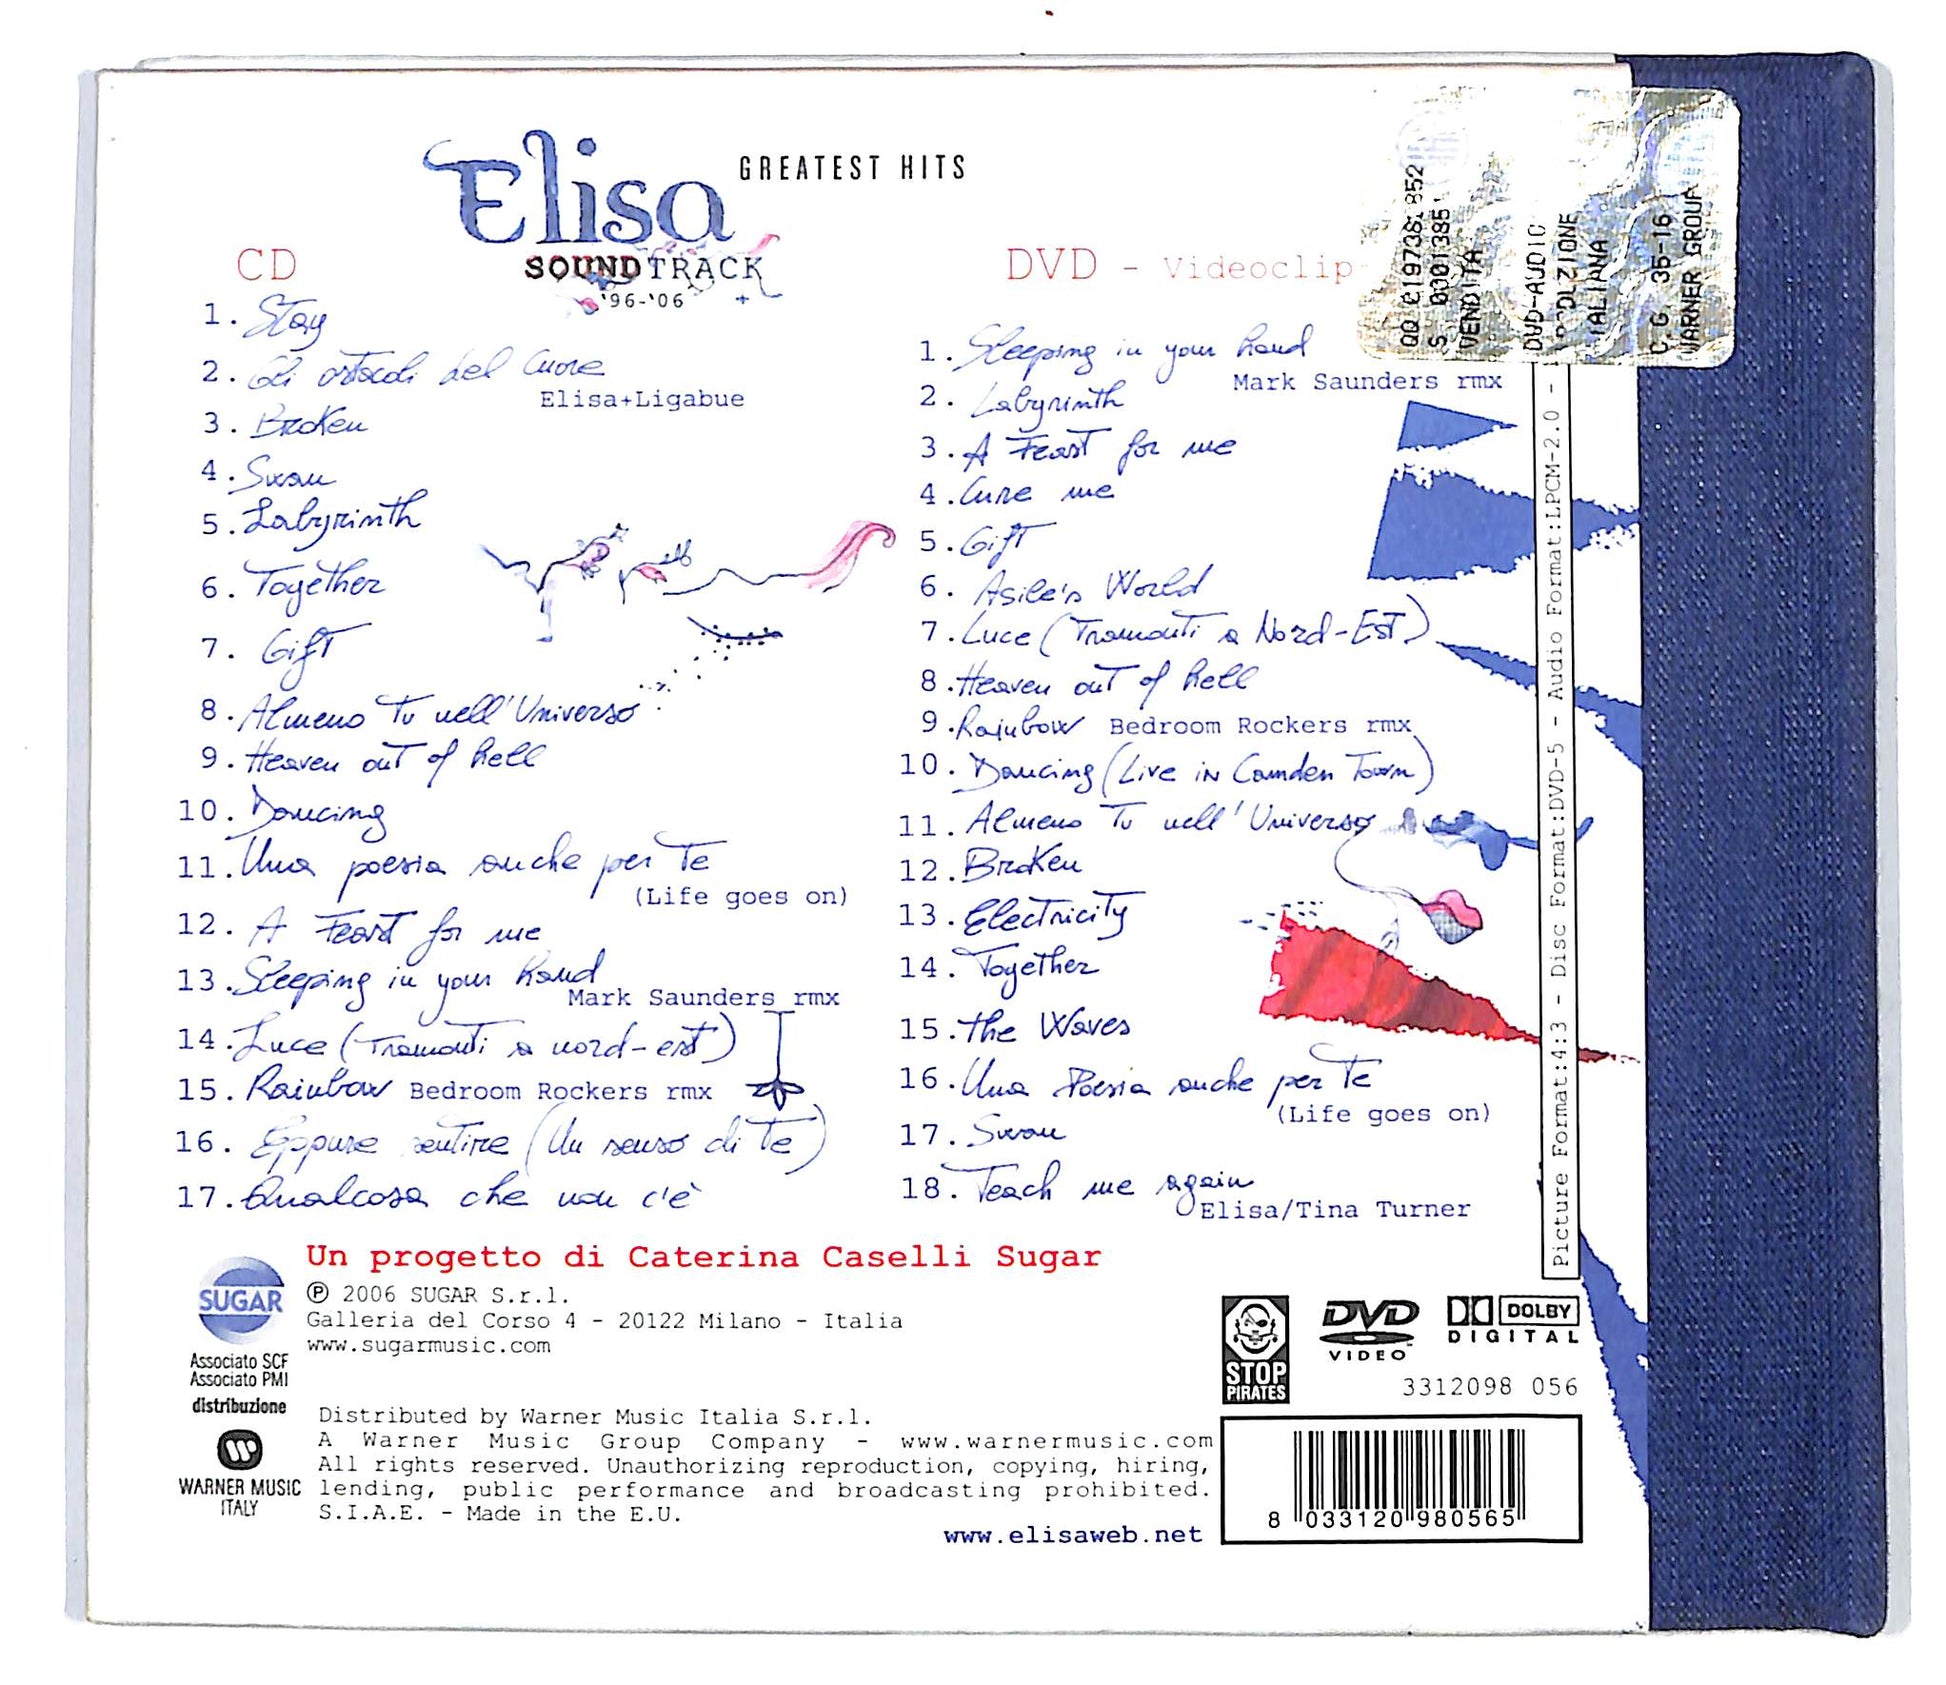 Elisa GREATEST HITS
SOUNDTRACK
'96-'06
CD
1. Stay
2. Gli ostacoli del Cuore
Elisa+Ligabue
3. Broken
4. Swan
5. Labyrinth
6. Together
7. Gift
8. Almeno Tu nell'Universo
9. Heaven out of hell
10. Dancing
11. Una poesia anche per Te
(Life goes on)
12. A Feast for me
13. Sleeping in your hand
Mark Saunders rmx
14. Luce (Tramonti a nord-est)
15. Rainbow Bedroom Rockers rmx
16. Eppure sentire (Un senso di Te)
17. Qualcosa che non c'è
DVD - Videoclip
1. Sleeping in your hand
Mark Saunders rmx
2. Labyrinth
3. A Feast for me
4. Cure me
5. Gift
6. Asile's World
7. Luce (Tramonti a Nord-Est)
8. Heaven out of hell
9. Rainbow Bedroom Rockers rmx
10. Dancing (Live in Camden Town)
11. Almeno Tu nell'Universo
12. Broken
13. Electricity
14. Together
15. The Waves
16. Una Poesia anche per Te
(Life goes on)
17. Swan
18. Teach me again
Elisa/Tina Turner
VENDITA
DVD-AUDIO
WARNER GROUP
Picture Format:4:3 - Disc Format:DVD-5 - Audio Format:LPCM-2.0 -
Un progetto di Caterina Caselli Sugar
SUGAR
℗ 2006 SUGAR S.r.l.
Galleria del Corso 4 - 20122 Milano - Italia
www.sugarmusic.com
Associato SCF
Associato PMI
distribuzione
WARNER MUSIC
ITALY
Distributed by Warner Music Italia S.r.l.
A Warner Music Group Company - www.warnermusic.com
All rights reserved. Unauthorizing reproduction, copying, hiring,
lending, public performance and broadcasting prohibited.
S.I.A.E. - Made in the E.U.
www.elisaweb.net
STOP
PIRATES
DVD
VIDEO
DOLBY
DIGITAL
3312098 056
8 033120 980565